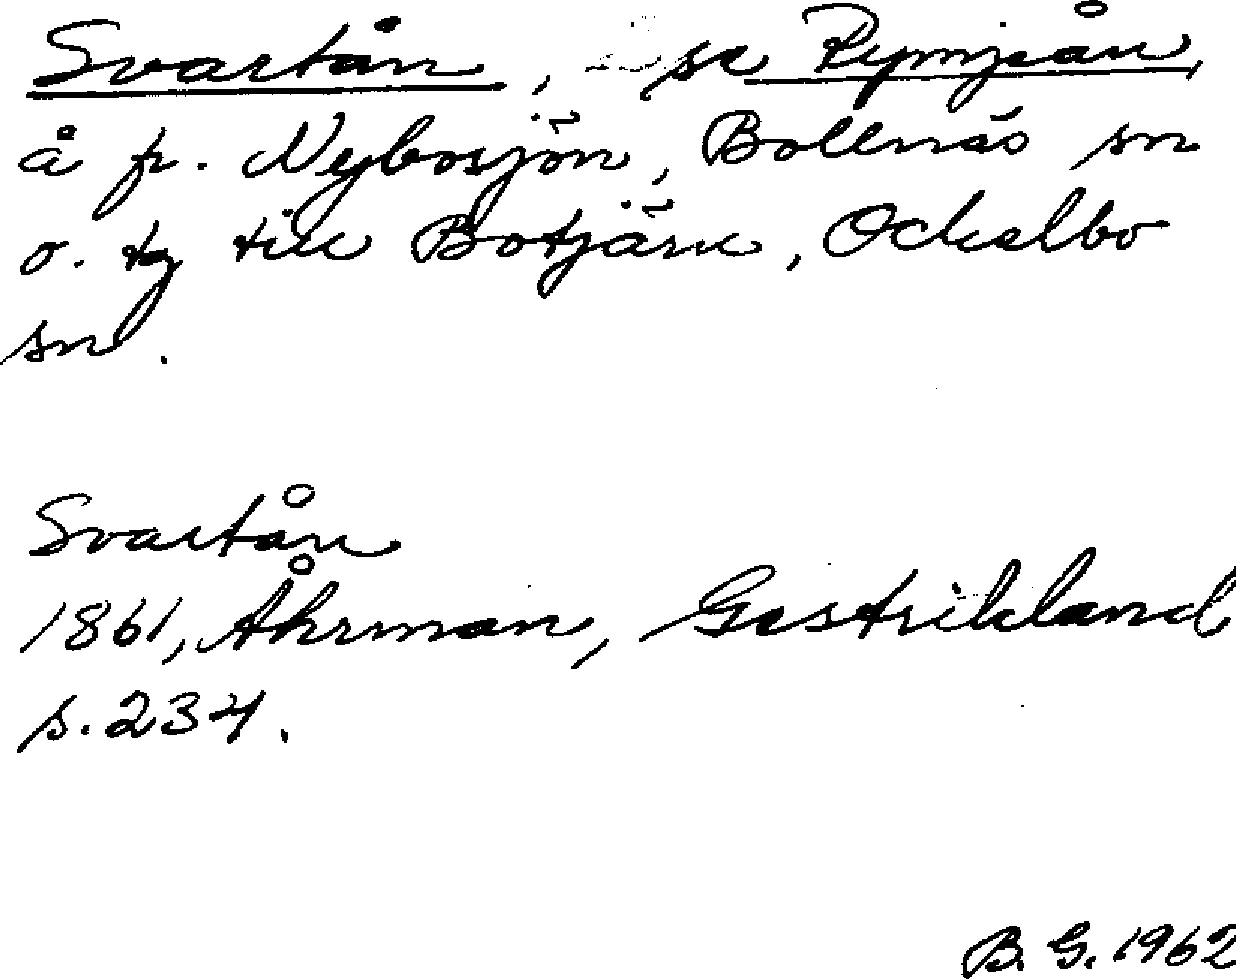 Svartån, se Rymjeån,
å fr. Nybosjön, Bollnäs sn
o. tg till Botjärn, Ockelbo
sn.
Svartån
1861, Åhrman, Gestrikland
s. 234.
B. G. 1962